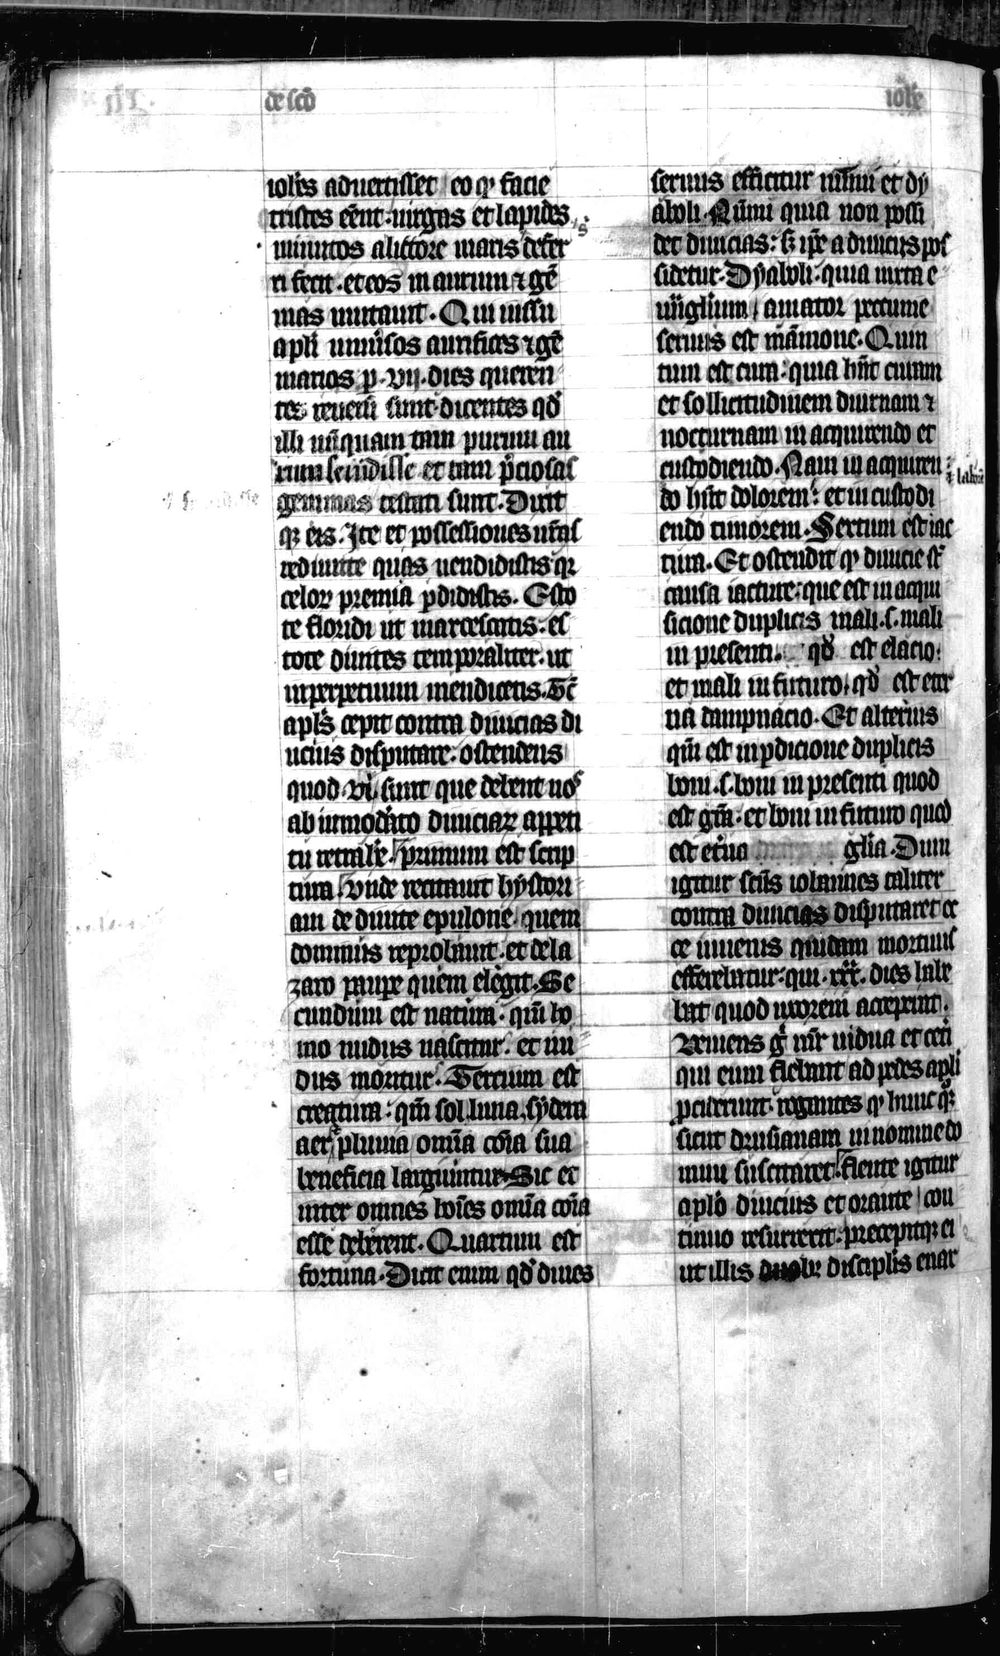 de sco
ioh̅e
ioh̅es aduertisset eo qͥ facie
tristes ee̅nt. uirgas et lapides
minutos a littore maris defer
ri fecit. et eos in aurum ⁊ ge̅
mas mutauit. Qui iussu
apl̅i uniu̅sos aurifices ⁊ ge̅
marios p̲. vij. dies queren
tes reuersi sunt dicentes qd̅
illi nu̅quam tam purum au
rum se uidisse et tam p̅ciosas
gemmas testati sunt. Dixit
qꝫ eis. Ite et possessiones ur̅as
redimite quas uendidistis qꝛ
celoꝝ premia p̲didistis. Esto
te floridi ut marcescatis. es
tote diuites temporaliter. ut
inperpetuum mendicetis. Tc̅
apl̅s cepit contra diuicias di
ucius disputare. ostendens
quod .vi. sunt que debent nos
ab inmod̅ato diuiciaꝝ appeti
tu retrahe̅. primum est scrip
tura. vnde recitauit hystori
am de diuite epulone. quem
dominus reprobauit. et de la
zaro paup̲e quem elegit. Se
cundum est natura. qm̅ ho
mo nudus nascitur. et nu
dus moritur. Tercium est
creatura. qm̅ sol luna sydera
aer pluuia omi̅a co̅ia sua
beneficia largiuntur. Sic et
inter omnes hoi̅es omi̅a co̅ia
esse deberent. Quartum est
fortuna. Dicit enim qd̅ diues
seruus efficitur nu̅mi et dy
aboli. Nu̅mi quia non possi
det diuicias: sꝫ ip̅e a diuicijs pos
sidetur. Dyaboli. quia iuxta e
uu̅gl̅ium amator pecunie
seruus est ma̅mone. Quin
tum est cura: quia hn̅t curam
et sollicitudinem diurnam ⁊
nocturnam in acquirendo et
custodiendo. Nam in acquiren
do hn̅t dolorem. et in custodi
endo timorem. Sextum est iac
tura. Et ostendit qͥ diuicie st̅
causa iacture: que est in acqui
sicione duplicis mali .s. mali
in presenti. qd̅ est elacio.
et mali in futuro. qd̅ est eter
na dampnacio. Et alterius
qm̅ est in p̲dicione duplicis
boni .s. boni in presenti quod
est gra̅. et boni in futuro quod
est et̅na gl̅ia. Dum
igitur scu̅s iohannes taliter
contra diuicias disputaret ec
ce iuuenis quidam mortuus
efferebatur. qui .xxx. dies habe
bat quod uxorem acceperat.
Veniens g̊ mr̅ uidua et cet̅i
qui eum flebant ad pedes apl̅i
p̲ciderunt rogantes qͥ hunc qꝫ
sicut drusianam in nomine do
mini suscitaret. flente igitur
apl̅o diucius et orante con
tinuo resurrexit. precepitqꝫ ei
ut illis duobꝫ discipl̅is enar